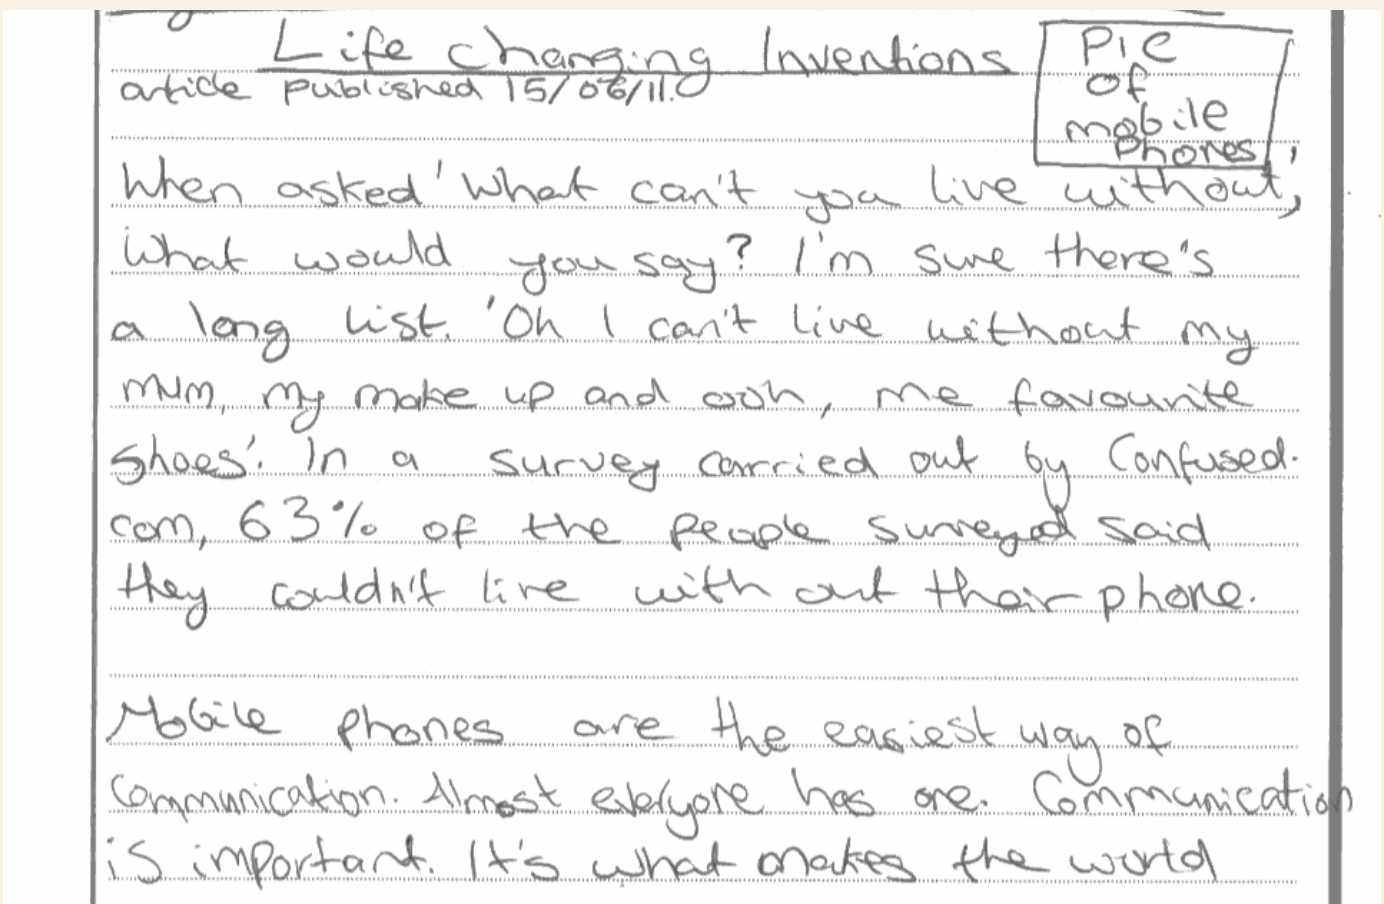 Life changing Inventions
article published 15/06/11.
Pic
of
mobile
phones
When asked 'What can't you live without',
What would you say? I'm sure there's
a long list. 'Oh I can't live without my
mum, my make up and ooh, me favourite
shoes'. In a survey carried out by Confused.
com, 63% of the people surveyed said
they couldn't live with out their phone.
Mobile phones are the easiest way of
communication. Almost everyone has one. Communication
is important. It's what makes the world